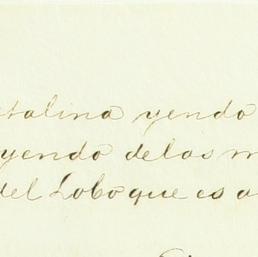 talina yendo
yendo de las
del Lobo que es a